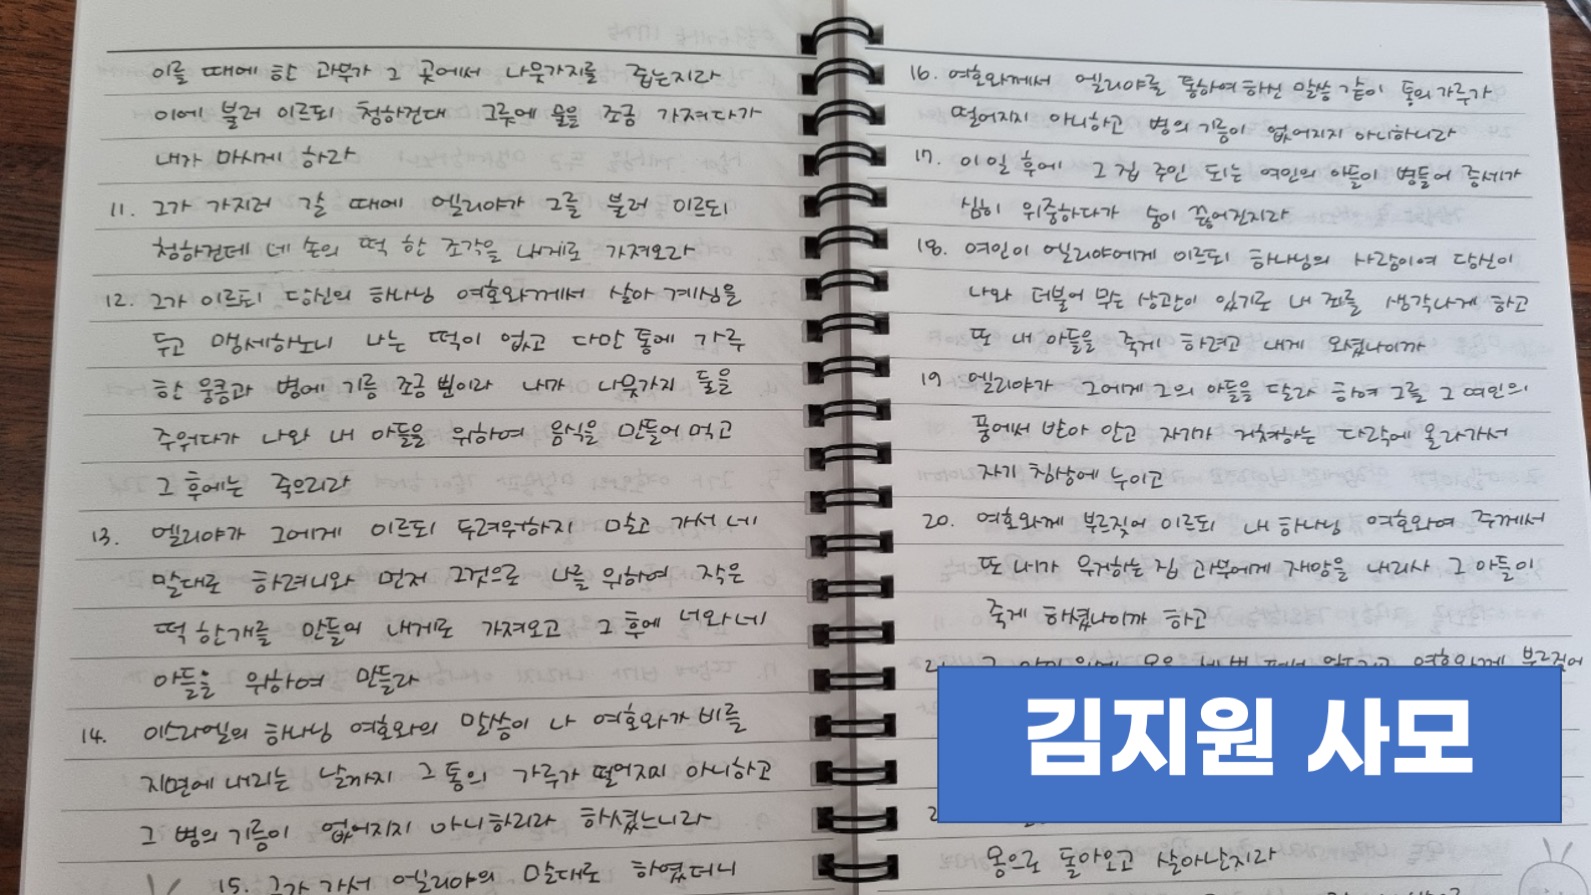 이를 때에 한 과부가 그 곳에서 나뭇가지를 줍는지라
이에 불러 이르되 청하건대 그릇에 물을 조금 가져다가
내가 마시게 하라
11. 그가 가지러 갈 때에 엘리야가 그를 불러 이르되
청하건데 네 손의 떡 한 조각을 내게로 가져오라
12. 그가 이르되 당신의 하나님 여호와께서 살아 계심을
두고 맹세하노니 나는 떡이 없고 다만 통에 가루
한 웅큼과 병에 기름 조금 뿐이라 내가 나뭇가지 둘을
주워다가 나와 내 아들을 위하여 음식을 만들어 먹고
그 후에는 죽으리라
13. 엘리야가 그에게 이르되 두려워하지 말고 가서 네
말대로 하려니와 먼저 그것으로 나를 위하여 작은
떡 한개를 만들어 내게로 가져오고 그 후에 너와 네
아들을 위하여 만들라
14. 이스라엘의 하나님 여호와의 말씀이 나 여호와가 비를
지면에 내리는 날까지 그 통의 가루가 떨어지지 아니하고
그 병의 기름이 없어지지 아니하리라 하셨느니라
15. 그가 가서 엘리야의 말대로 하였더니
16. 여호와께서 엘리야를 통하여 하신 말씀 같이 통의 가루가
떨어지지 아니하고 병의 기름이 없어지지 아니하니라
17. 이 일 후에 그 집 주인 되는 여인의 아들이 병들어 증세가
심히 위중하다가 숨이 끊어진지라
18. 여인이 엘리야에게 이르되 하나님의 사람이여 당신이
나와 더불어 무슨 상관이 있기로 내 죄를 생각나게 하고
또 내 아들을 죽게 하려고 내게 오셨나이까
19 엘리야가 그에게 그의 아들을 달라 하여 그를 그 여인의
품에서 받아 안고 자기가 거쳐하는 다락에 올라가서
자기 침상에 누이고
20. 여호와께 부르짖어 이르되 내 하나님 여호와여 주께서
또 내가 우거하는 집 과부에게 재앙을 내리사 그 아들이
죽게 하셨나이까 하고
여호와께 부르짖어
김지원 사모
몸으로 돌아오고 살아난지라